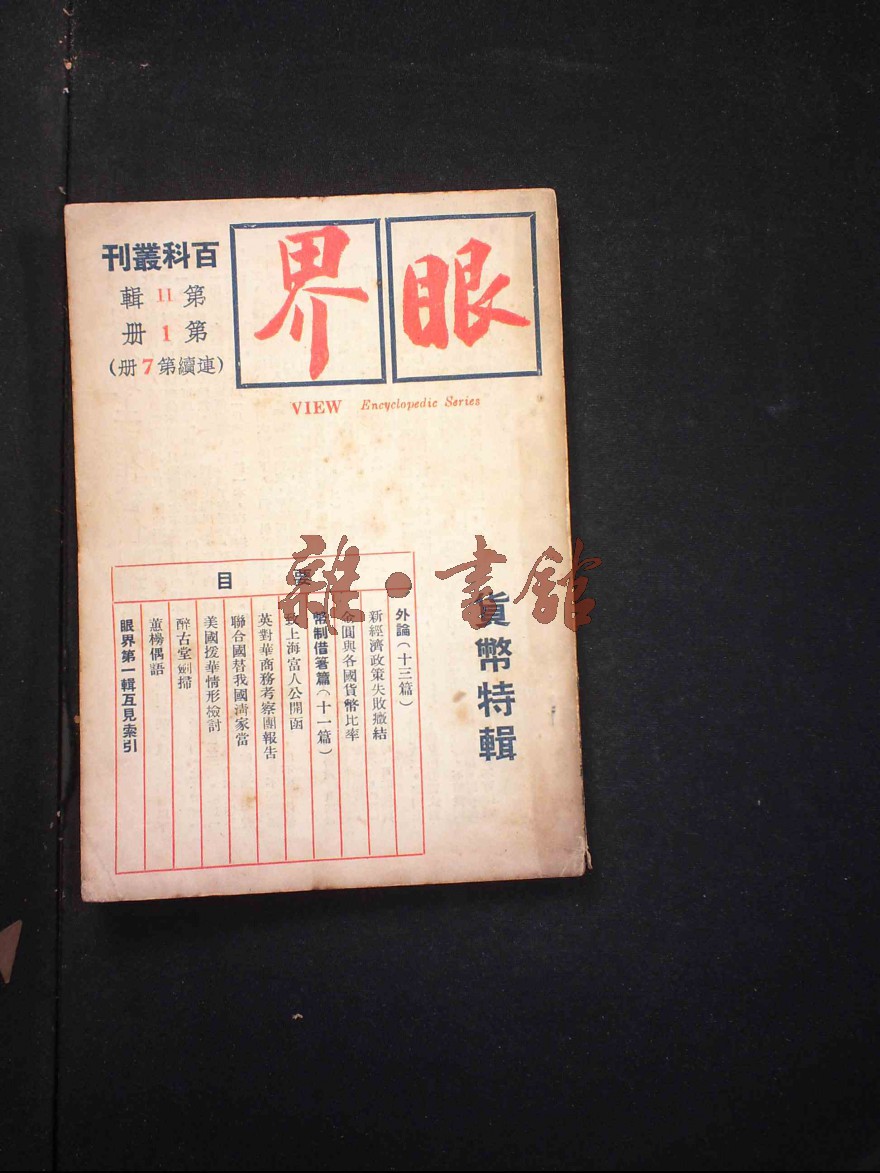 眼界
百科叢刊
第11輯
第1册
(連續第7册)
VIEW Encyclopedic Series
貨幣特輯
要目
外論(十三篇)
新經濟政策失敗癥結
金圓與各國貨幣比率
幣制借箸篇(十一篇)
致上海富人公開函
英對華商務考察團報告
聯合國替我國淸家當
美國援華情形檢討
醉古堂劍掃
蕉櫋偶語
眼界第一輯互見索引
雜·書館